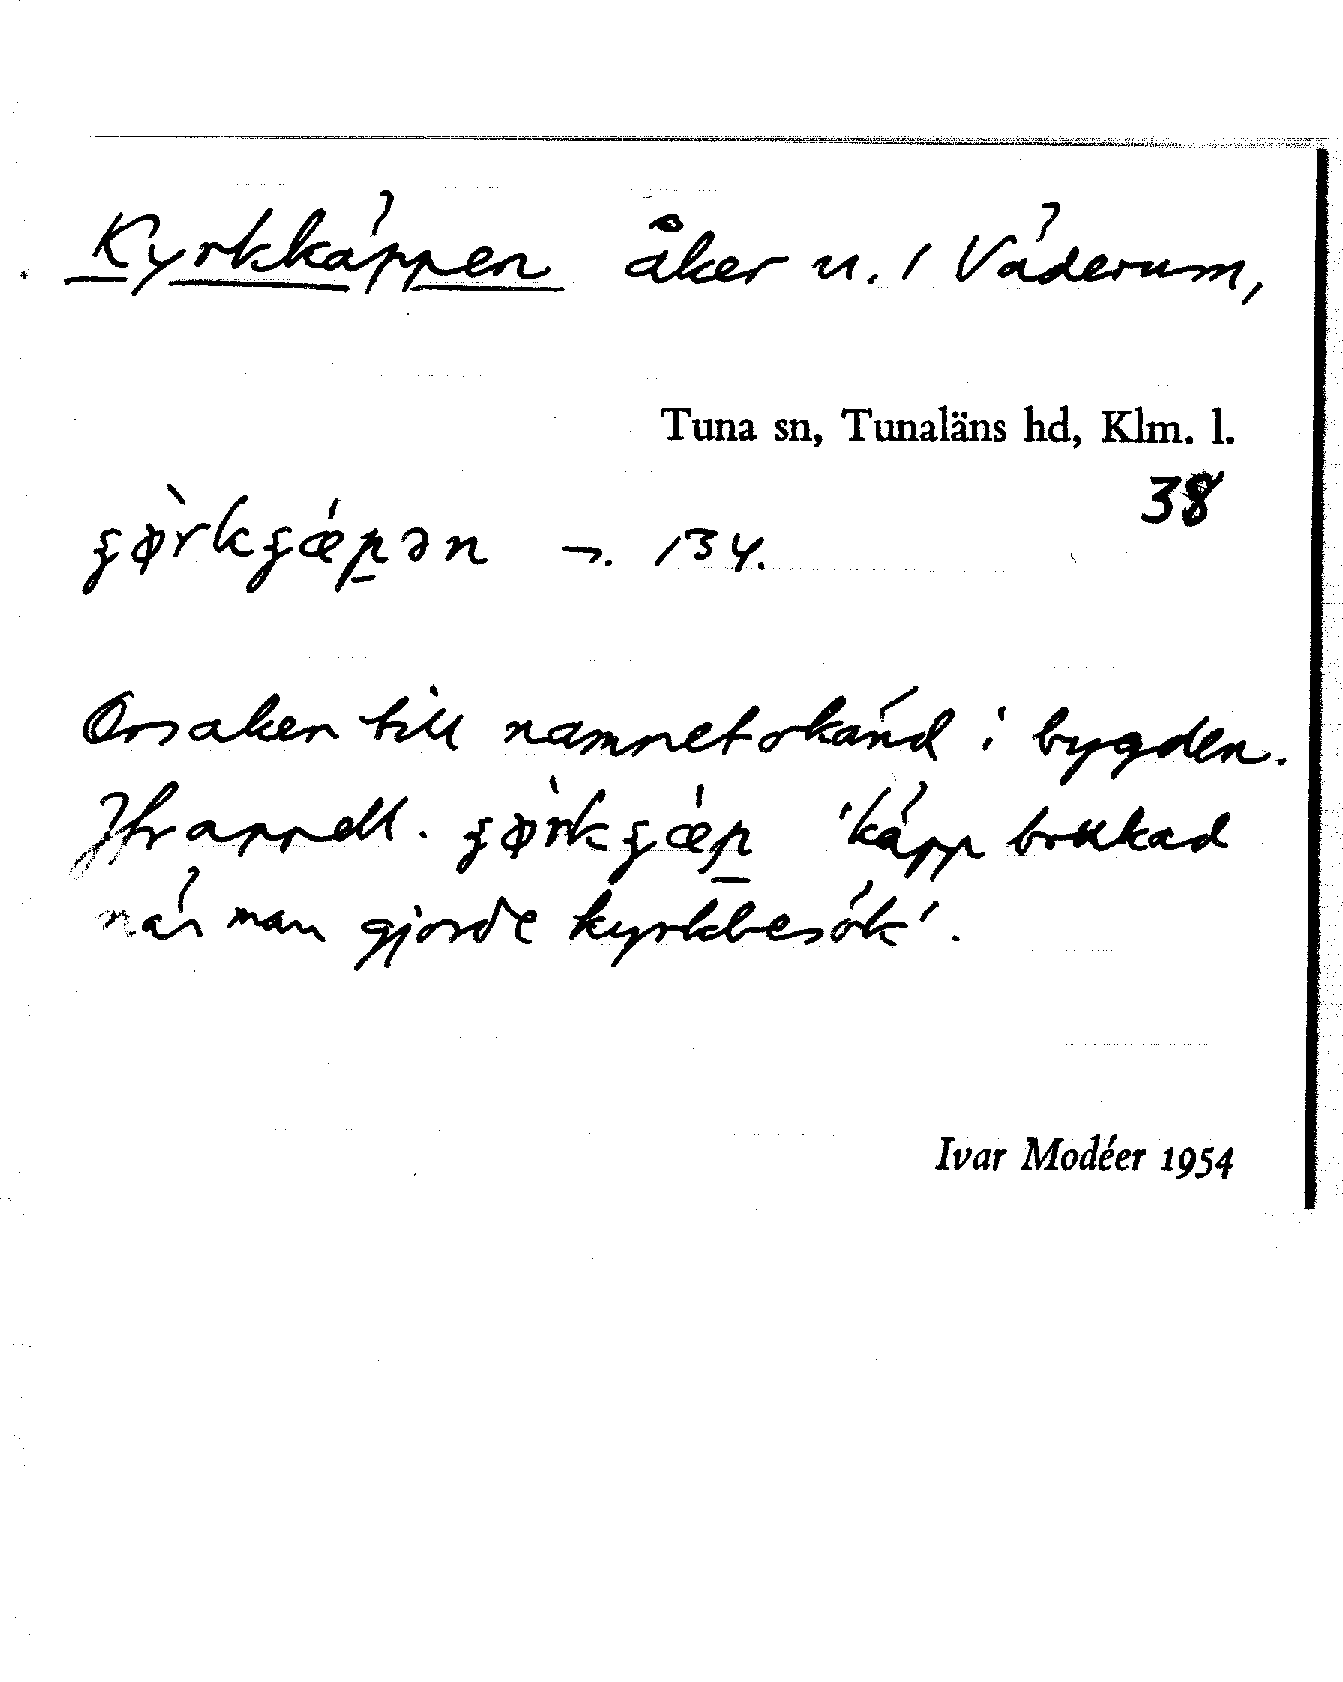 Kyrkkäppen åker u. 1 Väderum,
Tuna sn, Tunaläns hd, Klm. l.
38
ʂø̀rkʂǽpən ¬. 134.
Orsaken till namnet okänd i bygden.
Jfr appell. ʂø̀rkʂǽp 'käpp brukad
när man gjorde kyrkbesök'.
Ivar Modéer 1954